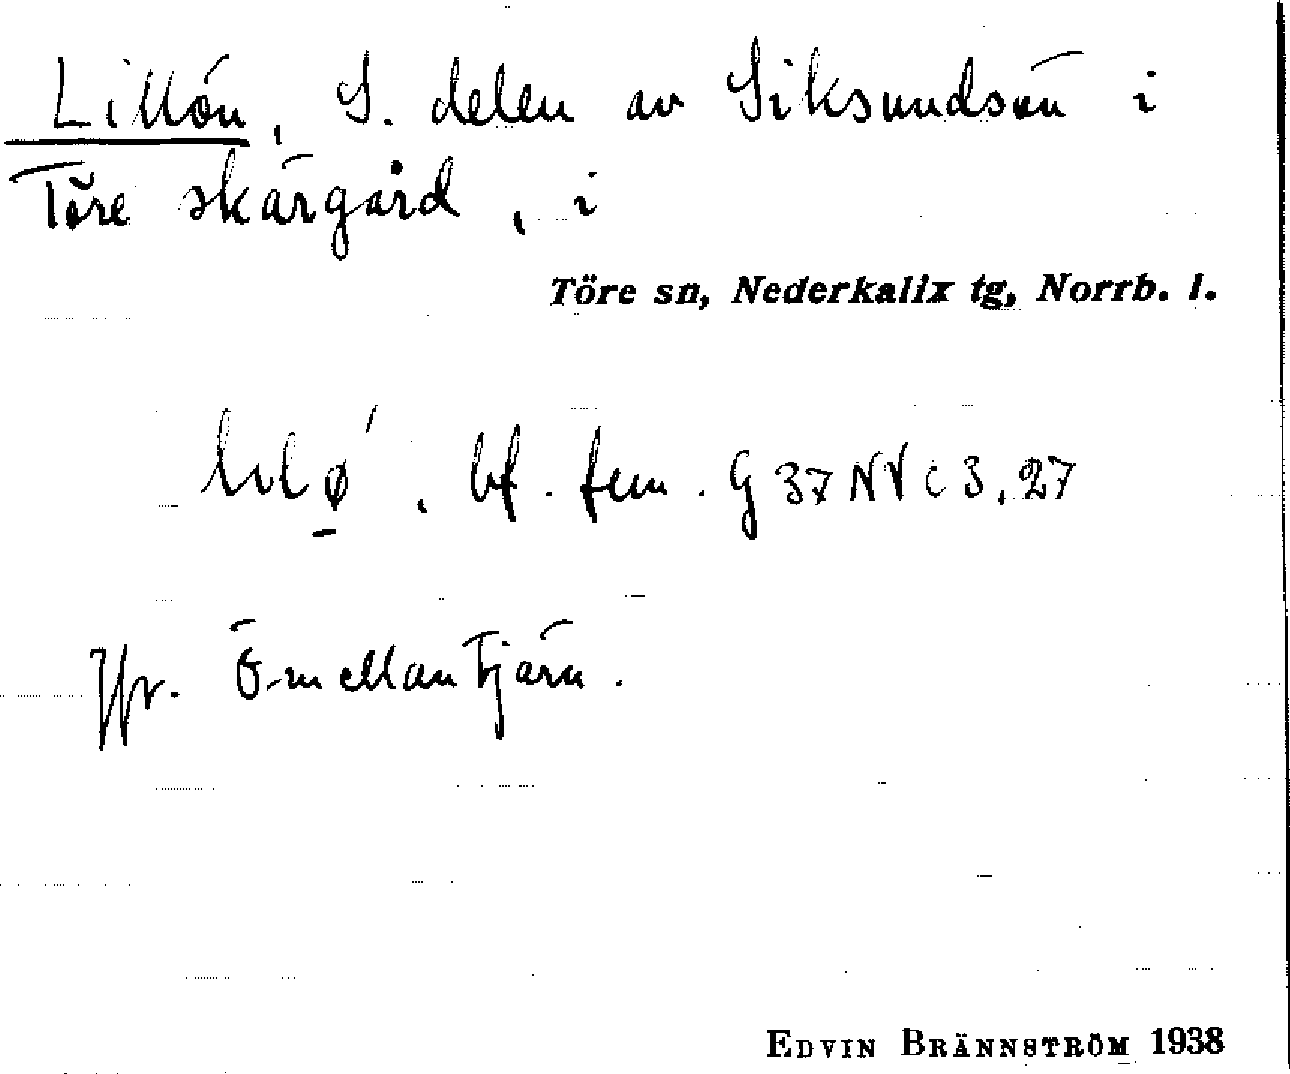 Lillön, S. delen av Siksundsön i
Töre skärgård, i
Töre sn, Nederkalix tg, Norrb. l.
bf. fem. G 37 NV c 3, 27
Jfr. Ö-mellanTjärn.
EDVIN BRÄNNSTRÖM 1938